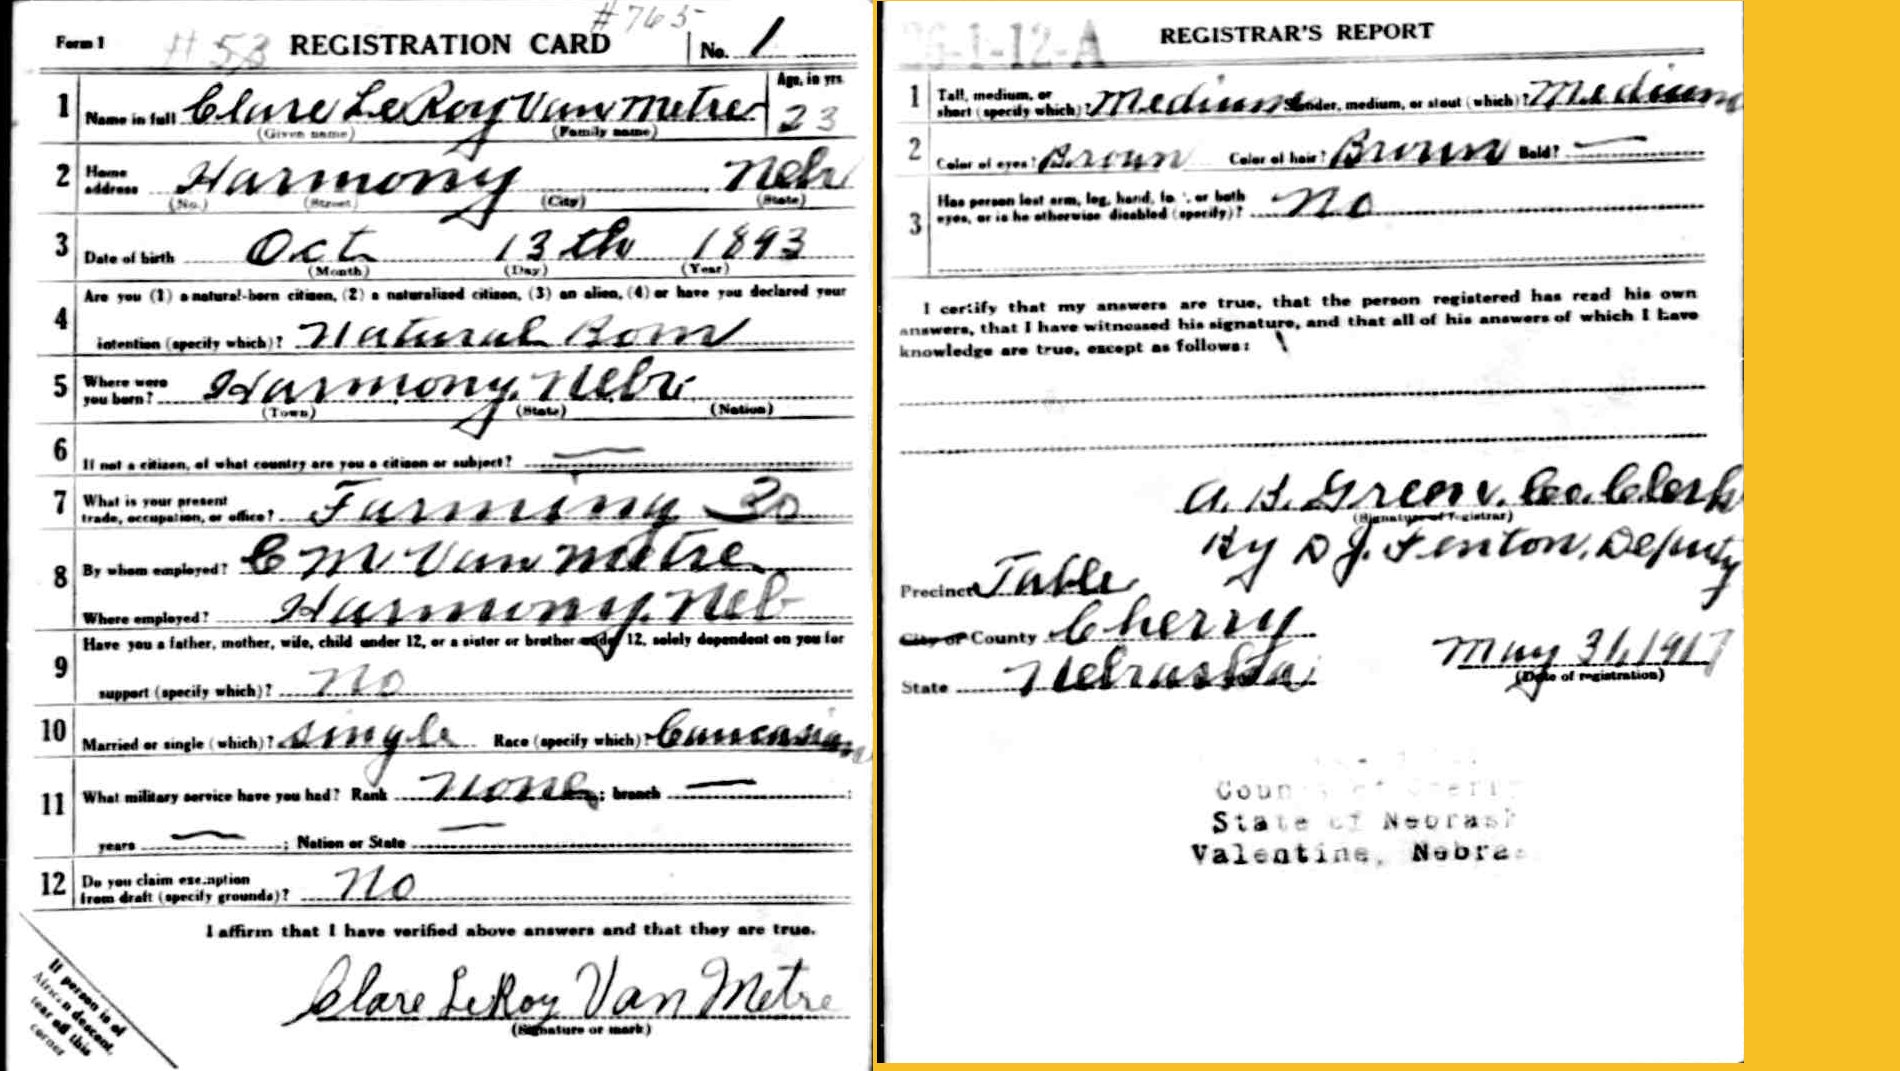 #765
Form 1 # 53 REGISTRATION CARD No. 1
1 Name in full Clare LeRoy Van Metre Age, in yrs. 23
(Given name) (Family name)
2 Home address Harmony Nebr
(No.) (Street) (City) (State)
3 Date of birth Oct 13th 1893
(Month) (Day) (Year)
4 Are you (1) a natural-born citizen, (2) a naturalized citizen, (3) an alien, (4) or have you declared your
intention (specify which)? Natural Born
5 Where were you born? Harmony, Nebr.
(Town) (State) (Nation)
6 If not a citizen, of what country are you a citizen or subject? —
7 What is your present trade, occupation, or office? Farming 30
8 By whom employed? C M Van Metre
Where employed? Harmony, Neb
9 Have you a father, mother, wife, child under 12, or a sister or brother under 12, solely dependent on you for
support (specify which)? No
10 Married or single (which)? Single Race (specify which)? Caucasian
11 What military service have you had? Rank None; branch —;
years —; Nation or State —
12 Do you claim exemption from draft (specify grounds)? No
I affirm that I have verified above answers and that they are true.
Clare LeRoy Van Metre
(Signature or mark)
If person is of
African descent,
tear off this
corner
26-1-12-A
REGISTRAR'S REPORT
1 Tall, medium, or short (specify which)? Medium Slender, medium, or stout (which)? Medium
2 Color of eyes? Brown Color of hair? Brown Bald? —
3 Has person lost arm, leg, hand, foot, or both
eyes, or is he otherwise disabled (specify)? No
I certify that my answers are true, that the person registered has read his own
answers, that I have witnessed his signature, and that all of his answers of which I have
knowledge are true, except as follows:
A. B. Green, Co. Clerk
(Signature of registrar)
By D J. Fenton, Deputy
Precinct Table
City or County Cherry
State Nebraska May 31, 1917
(Date of registration)
County of Cherry
State of Nebras
Valentine, Nebra